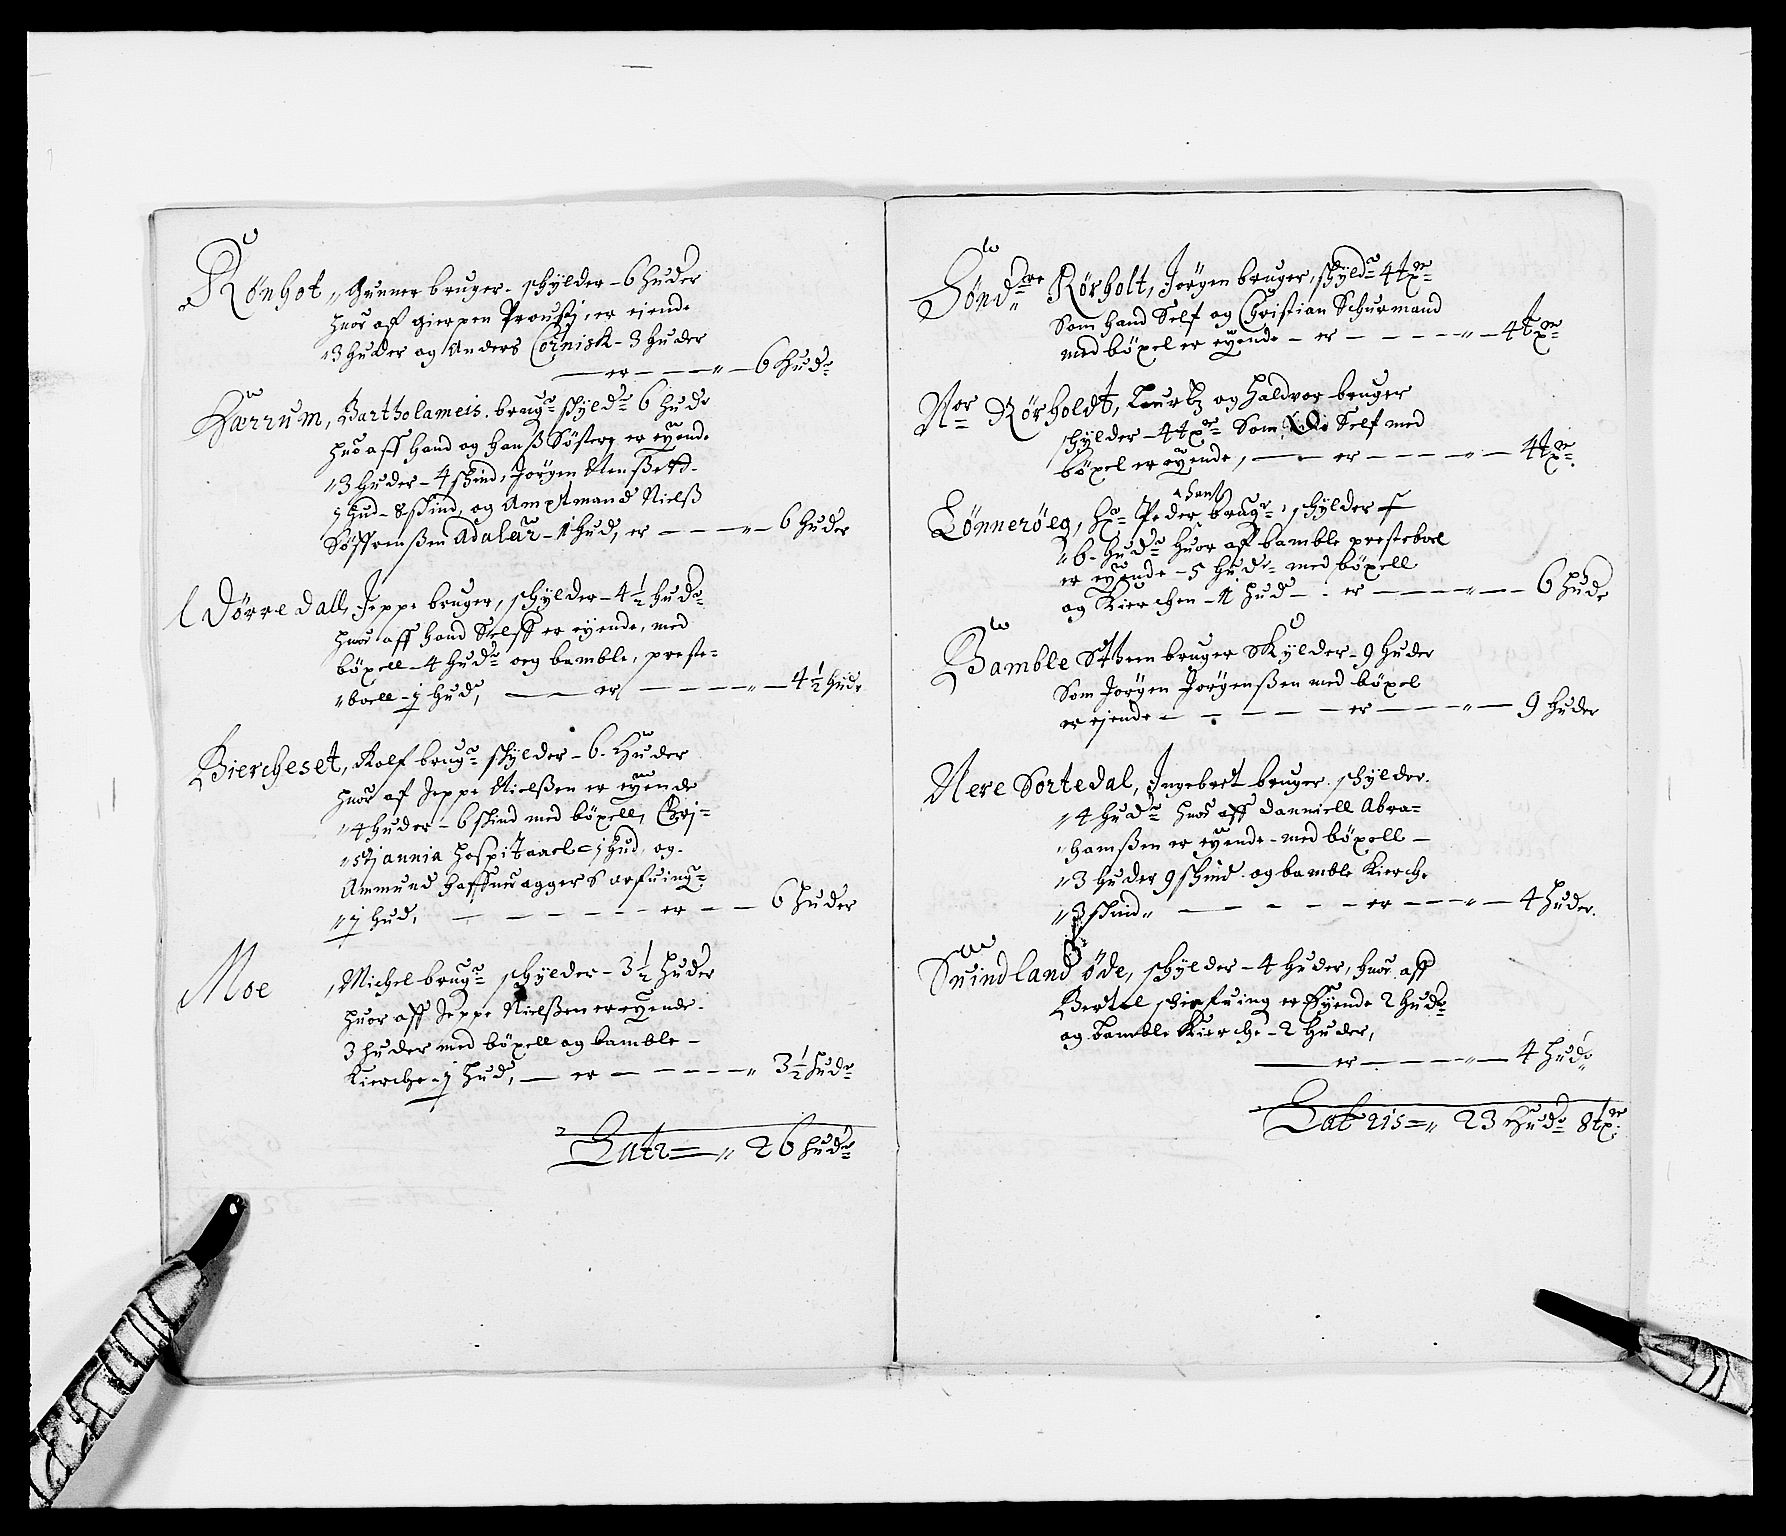 Rønhot, Gunner bruger - schylder - 6 huder
huor af gierpen Prousti, er eiende
3 huder og Anders Cornisk - 3 huder
er - - - „ - 6 hudr
Hærrum, Bartholameis brugr schyldr 6 hudr
huor aff hand og hanß Søstere er eyende
3 huder - 4 skind, Jørgen
j hud - 8 skind, og Amptmand Nielß
Søffrenßen Adalär - 1 hud, er - - - „ - 6 huder
Dørredall, Jeppe bruger, schylder - 4 1/2 hudr
huor aff hand Selff er eyende, med
bøxell - 4 hudr og bamble, preste-
boell - j hud, - er - - - „ - 4 1/2 hudr
Biercheset, Rolf brugr schylder - 6 Huder
huor af Jeppe Nielßen er eyende
4 huder - 6 skind med bøxell, Chri-
stjannia hospitaael - j hud, og
Ammund arfuing-
j hud, - - - - - er - - 6 huder
Moe, Michel brugr schylder - 3 1/2 huder
huor aff Jeppe Nielßen er eyende
3 huder med bøxell og bamble -
Kierche - j hud, - er - - - - „ 3 1/2 hudr
Latr = „ 26 hudr
Søndre Rørholt, Jørgen bruger, schyldr 4 txr
Som hand Self og Christian Schurmand
med bøxel er eyende - er - - - - „ - 4 txr
Nor Rørholdt, Laurtz og Haldvor bruger
schylder - 4 txr Som Self med
bøxel er eyende, - er - - - „ - 4 txr
Lønnerøeg, Hr Peder hanß brugr, schylder
6 - hudr huor af bamble presteboel
er eyende - 5 hudr med bøxell
og Kierchen - 1 hud - er - - - „ - 6 hudr
Bamble Sthen bruger Skylder - 9 huder
Som Jørgen Jørgenßen med bøxel
er ejende - - - - er - - „ - 9 huder
Nere Sortedal, Ingebret bruger schylder
4 hudr huor aff Danniell Abra-
hamßen er eyende - med bøxell -
3 huder 9 skind og bamble Kierche
3 skind „ - - - - er - - - „ - 4 huder
Suindland øde, schylder - 4 huder, huor aff
Bertel er Eyende 2 hudr
og bamble Kierche - 2 huder,
er - - - „ - 4 hudr
Lateris = „ 23 Hudr 8 txr